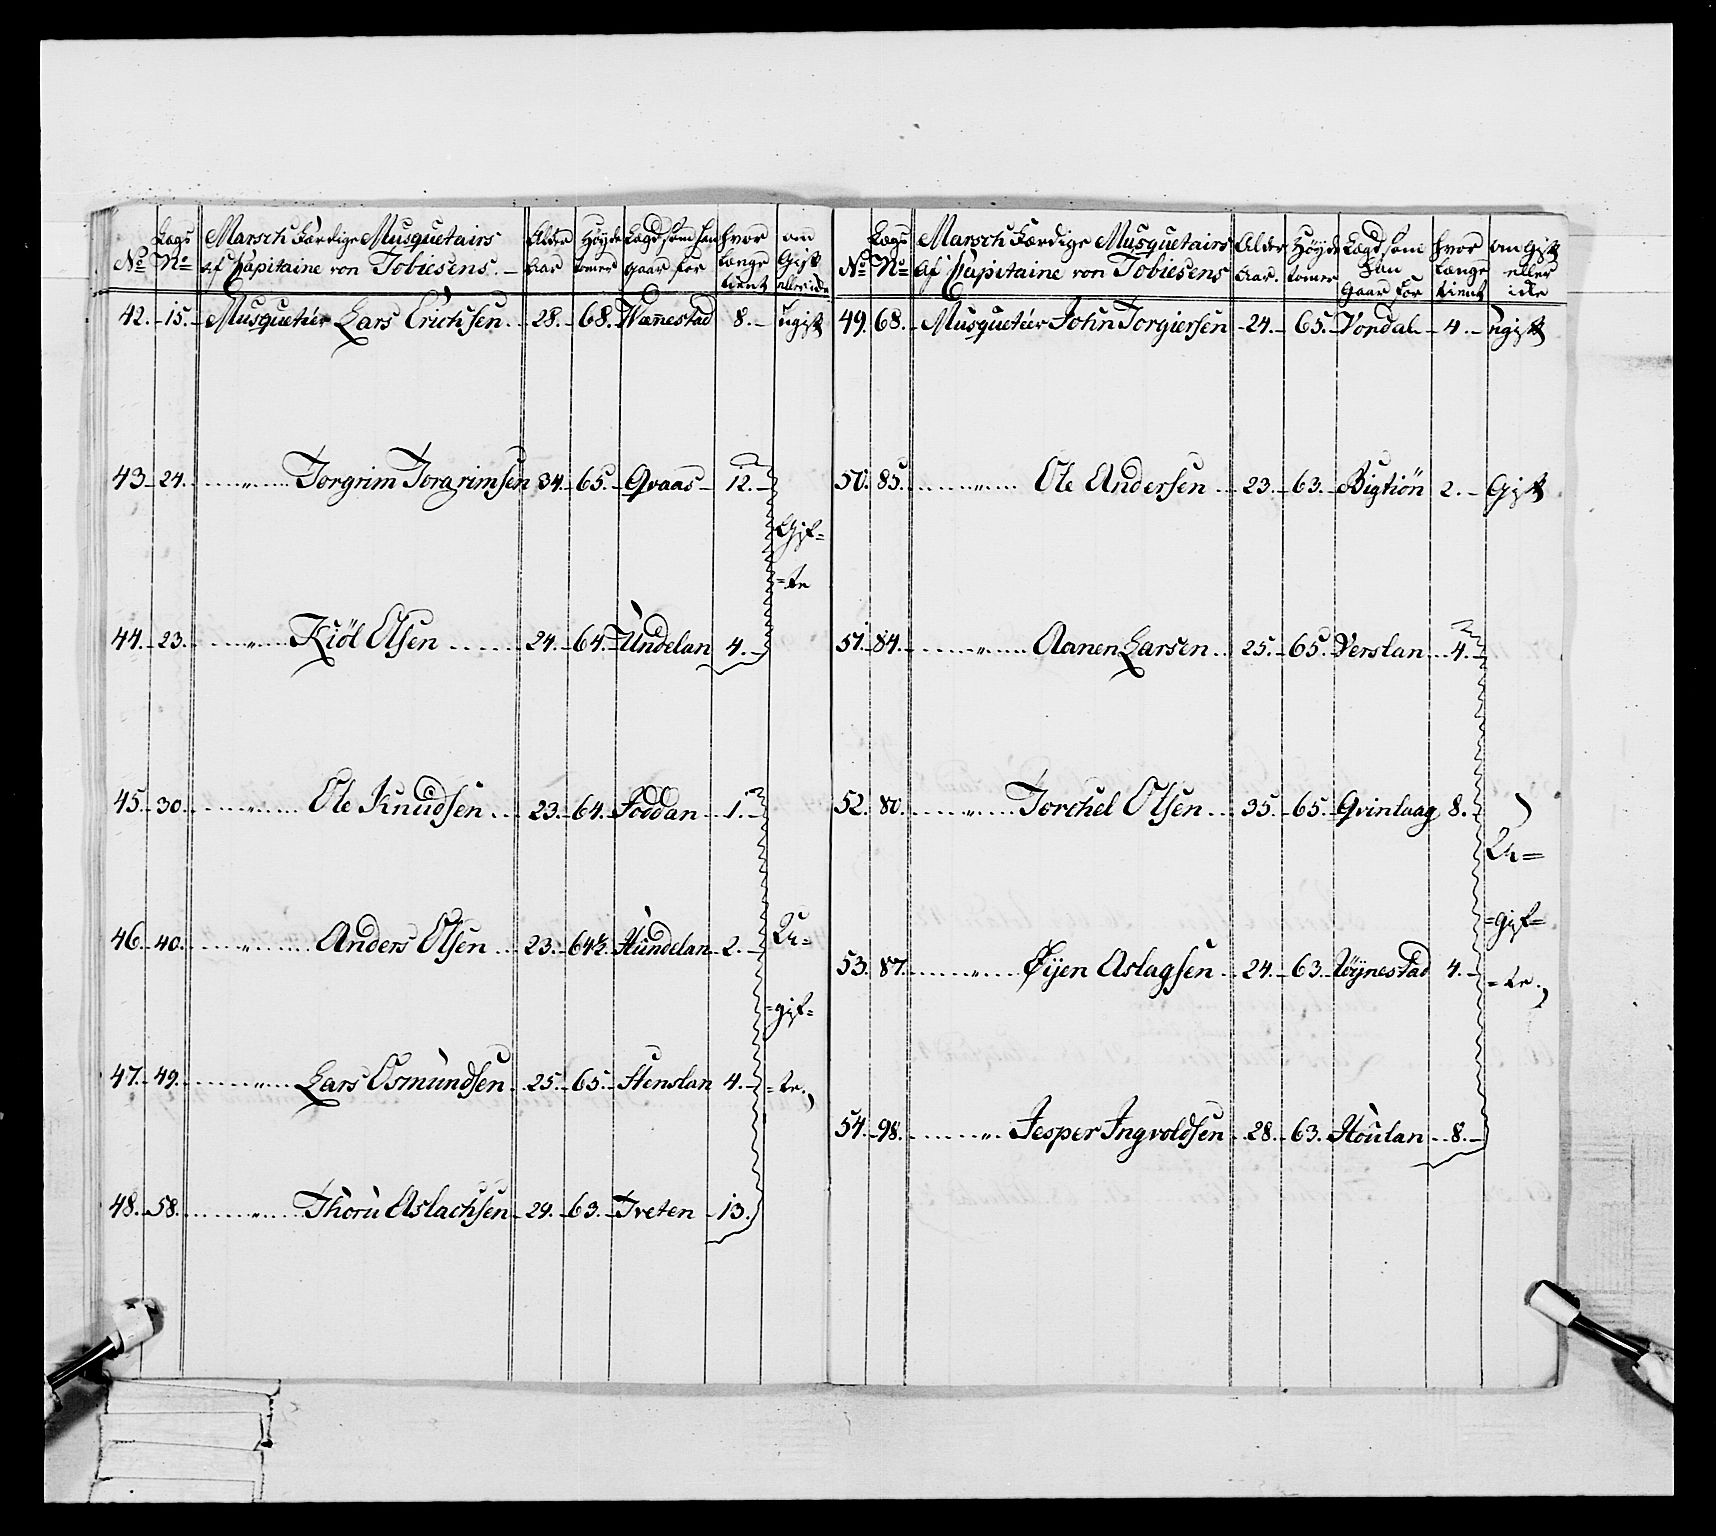 No
Lægs No
Marsch Færdige Musquetairs af Capitaine von Tobiesens.
Alder Aar
Høyde tomer
Lægd som han gaar for
hvor længe tient
om Gift eller ide
42. 15. Musquetér Lars Erichsen 28. 68. Wænestad 8. ugift
43. 24. Torgrim Torgrimsen 34. 65. Qvaas 12.
Gif=
=te
44. 23. Kiöl Olsen 24. 64. Undelan 4.
45. 30. Ole Knudsen 23. 64. Foddan 1.
46. 40. Anders Olsen 23. 64½. Hundelan 2. U=
=gif=
47. 49. Lars Osmundsen 25. 65. Stenslan 4. =te.
48. 58. Thoru Aslachsen 29. 63. Treten 13.
No
Lægs No
Marsch Færdige Musquetairs af Capitaine von Tobiesens
Alder Aar.
Høyde tomer
Lægd som han gaar for
hvor længe tient
om gift eller ide
49. 68. Musquetéer John Torgiersen 24. 65. Vordal 4. ugift
50. 85. Ole Andersen 23. 63. Bigtiön 2. Gift
51. 84. Aanen Larsen 25. 65. Verslan 4.
52. 80. Torchel Olsen 35. 65. Qvinlaag 8.
U=
=gif=
53. 87. Øijen Aslagsen 24. 63. Wøynestad 4. =te.
54. 98. Jesper Ingvoldsen 28. 63. Houlan 8.